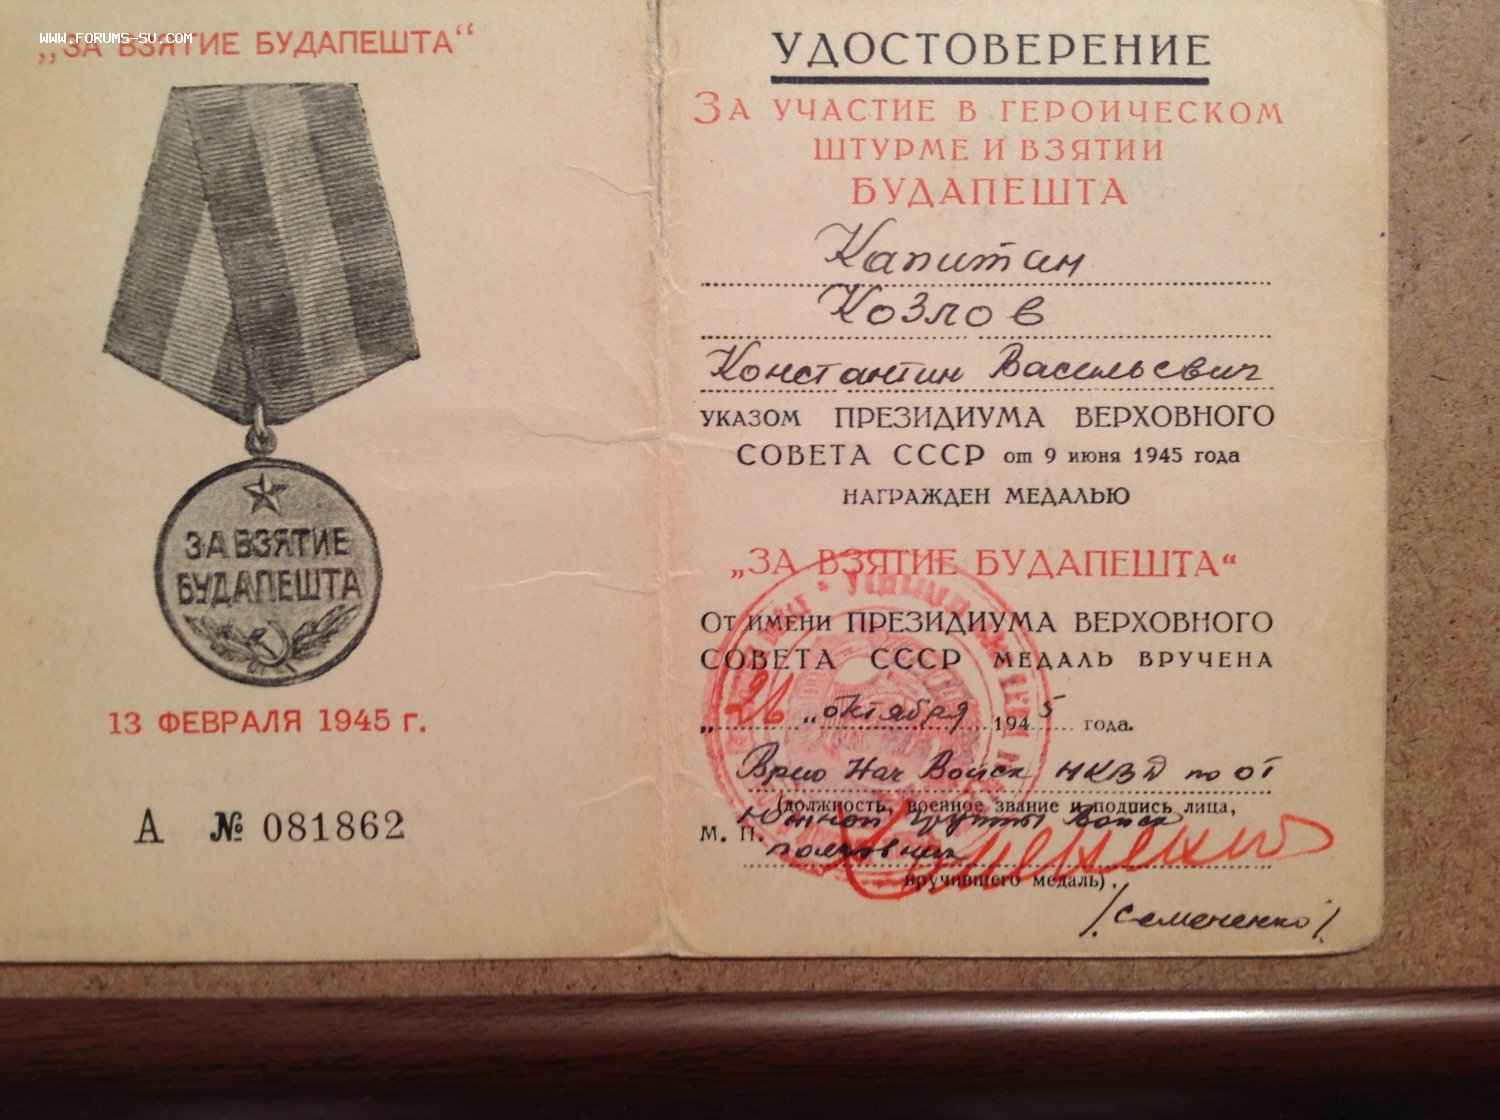 www.forums-su.com
„ЗА ВЗЯТИЕ БУДАПЕШТА“
ЗА ВЗЯТИЕ
БУДАПЕШТА
13 ФЕВРАЛЯ 1945 г.
А № 081862
УДОСТОВЕРЕНИЕ
ЗА УЧАСТИЕ В ГЕРОИЧЕСКОМ
ШТУРМЕ И ВЗЯТИИ
БУДАПЕШТА
Капитан
Козлов
Константин Васильевич
УКАЗОМ ПРЕЗИДИУМА ВЕРХОВНОГО
СОВЕТА СССР от 9 июня 1945 года
НАГРАЖДЕН МЕДАЛЬЮ
„ЗА ВЗЯТИЕ БУДАПЕШТА“
ОТ ИМЕНИ ПРЕЗИДИУМА ВЕРХОВНОГО
СОВЕТА СССР МЕДАЛЬ ВРУЧЕНА
„26 „ октября 1945 года.
Врио Нач Войск НКВД по ОТ
(должность, военное звание и подпись лица,
Южной группы Войск
М. П. полковник
вручившего медаль).
/Семененко/